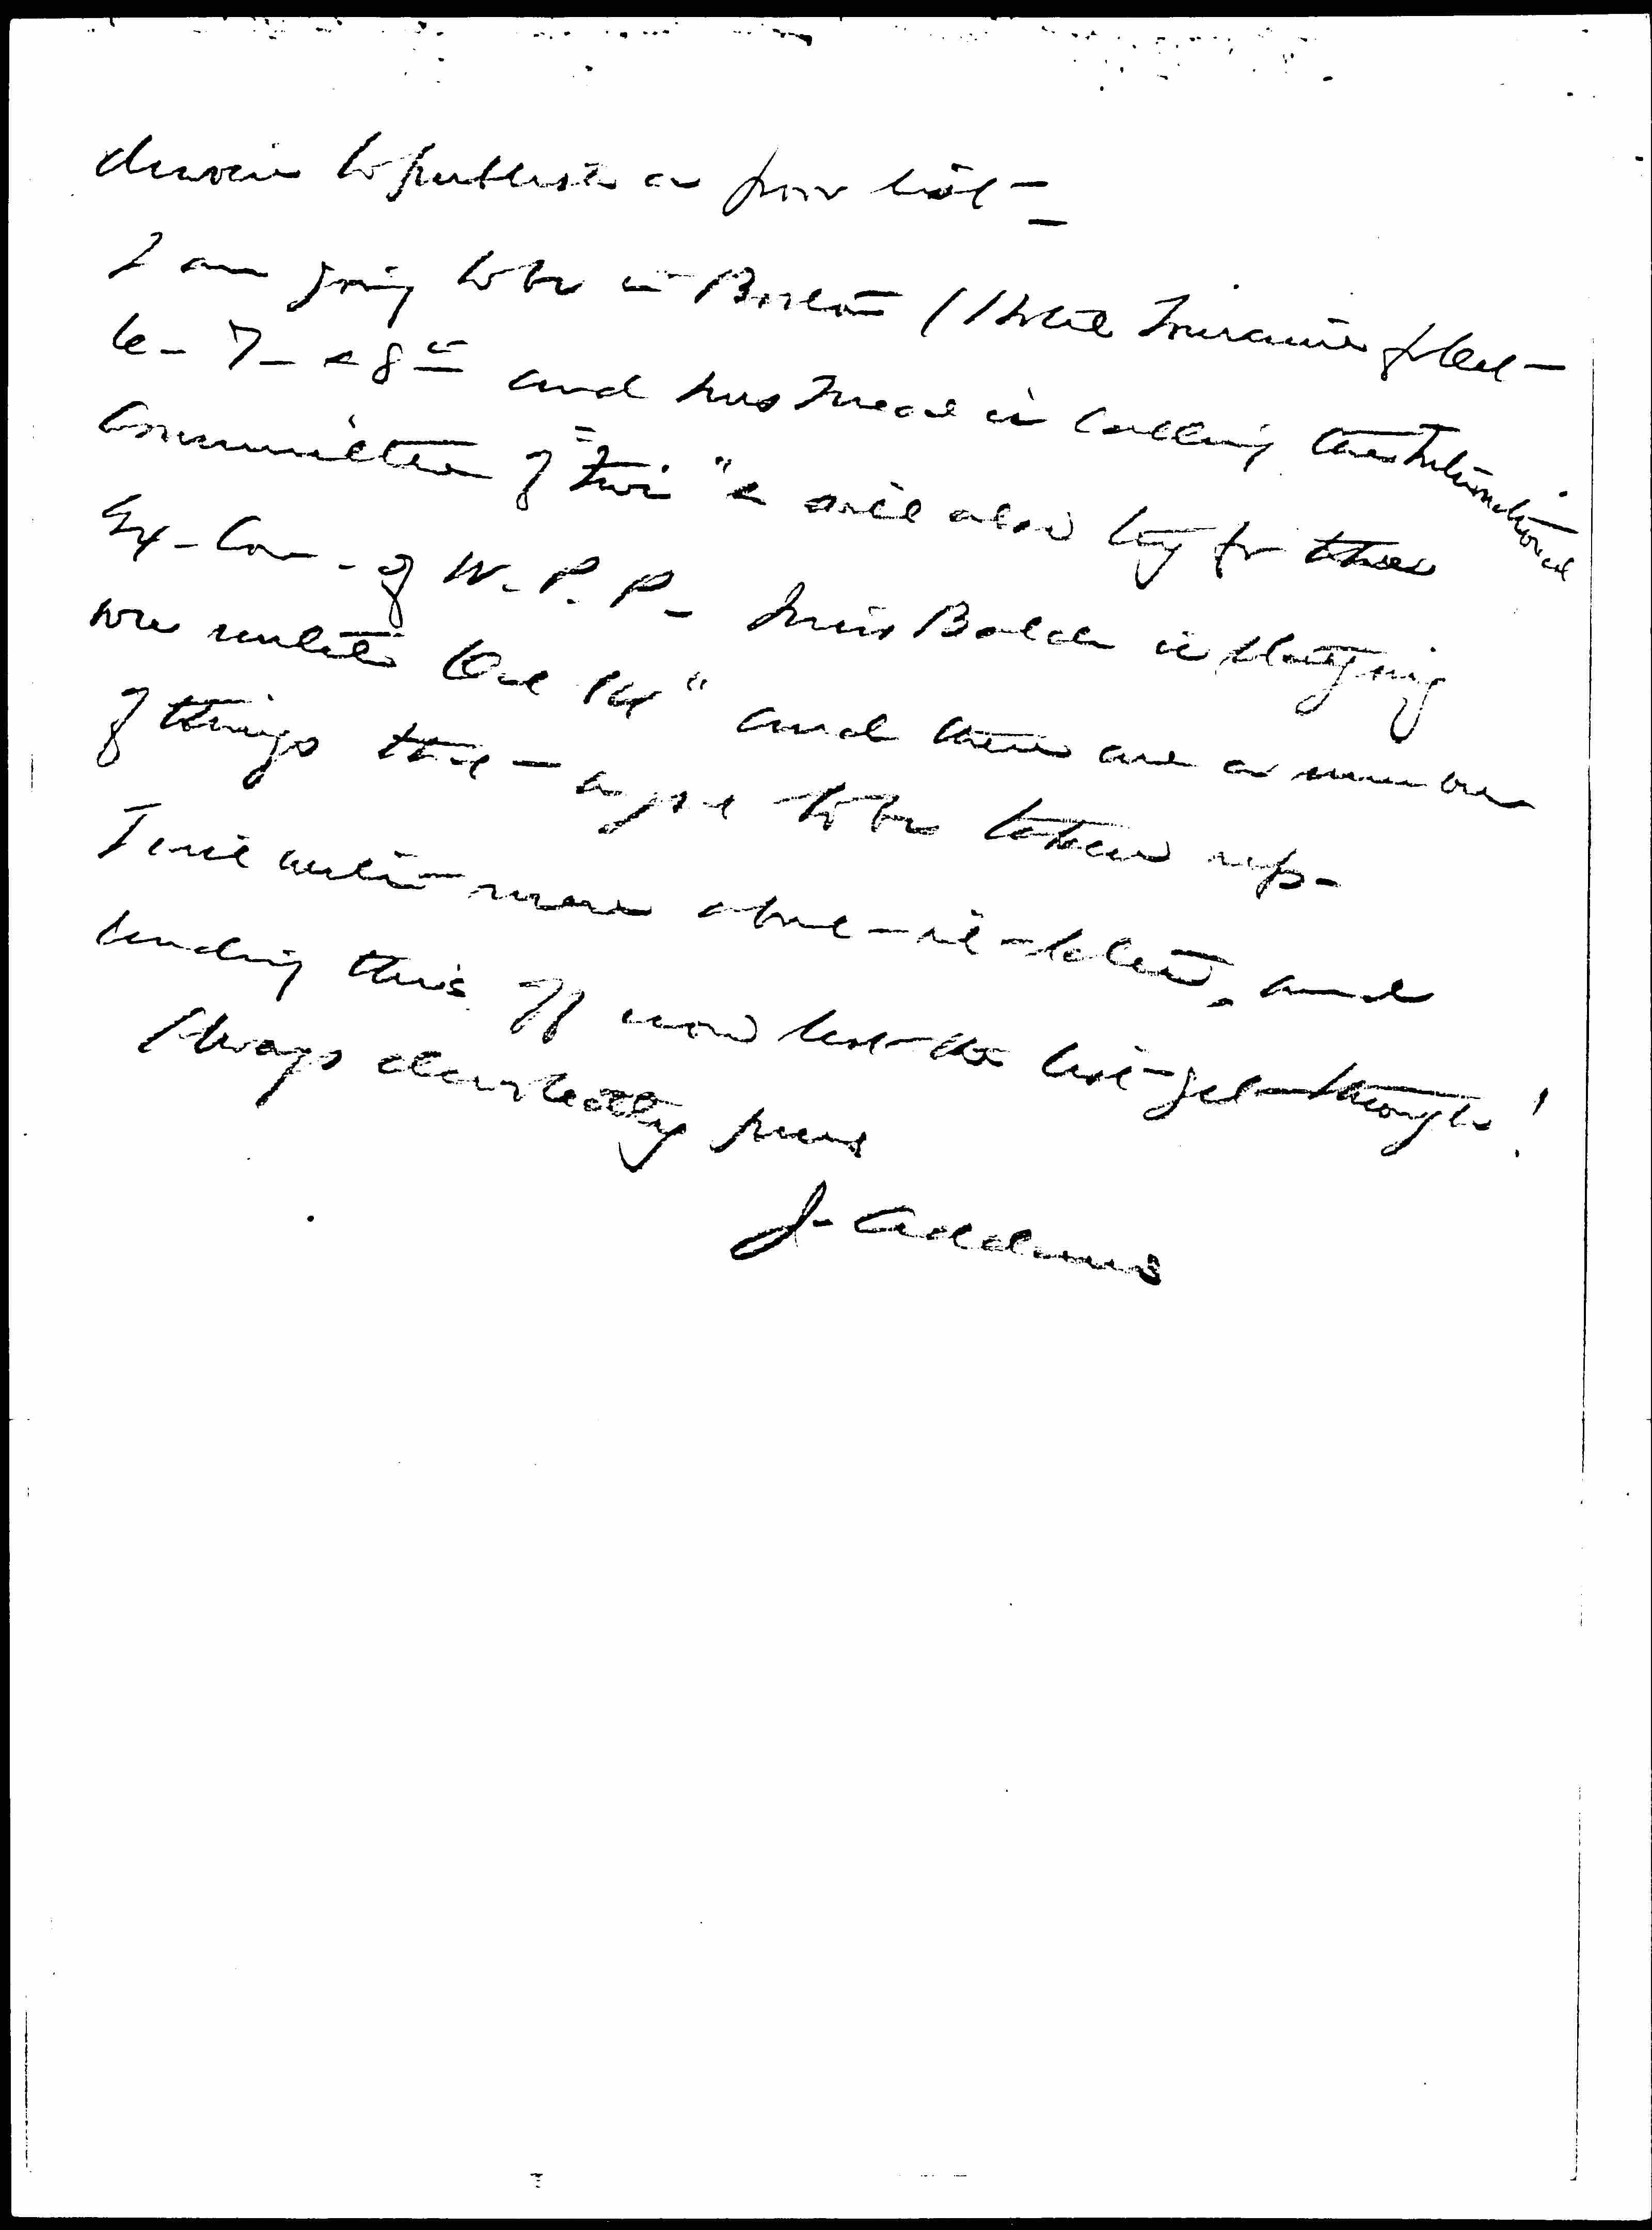 desire to publish a poor list —
I am going to be in Boston (Hotel Touraine) Oct —
6 — 7 — & 8" and Mrs Mead is calling the International
Committee of "Five" & will also try for the
Ex - Com - of W. P. P — Miss Balch is staying
here until Oct 14" and there are a number
of things that — ought to be taken up —
I will write more about — it — later, and
sending this off now lest the list — get — through!
Always devotedly yours
J. Addams